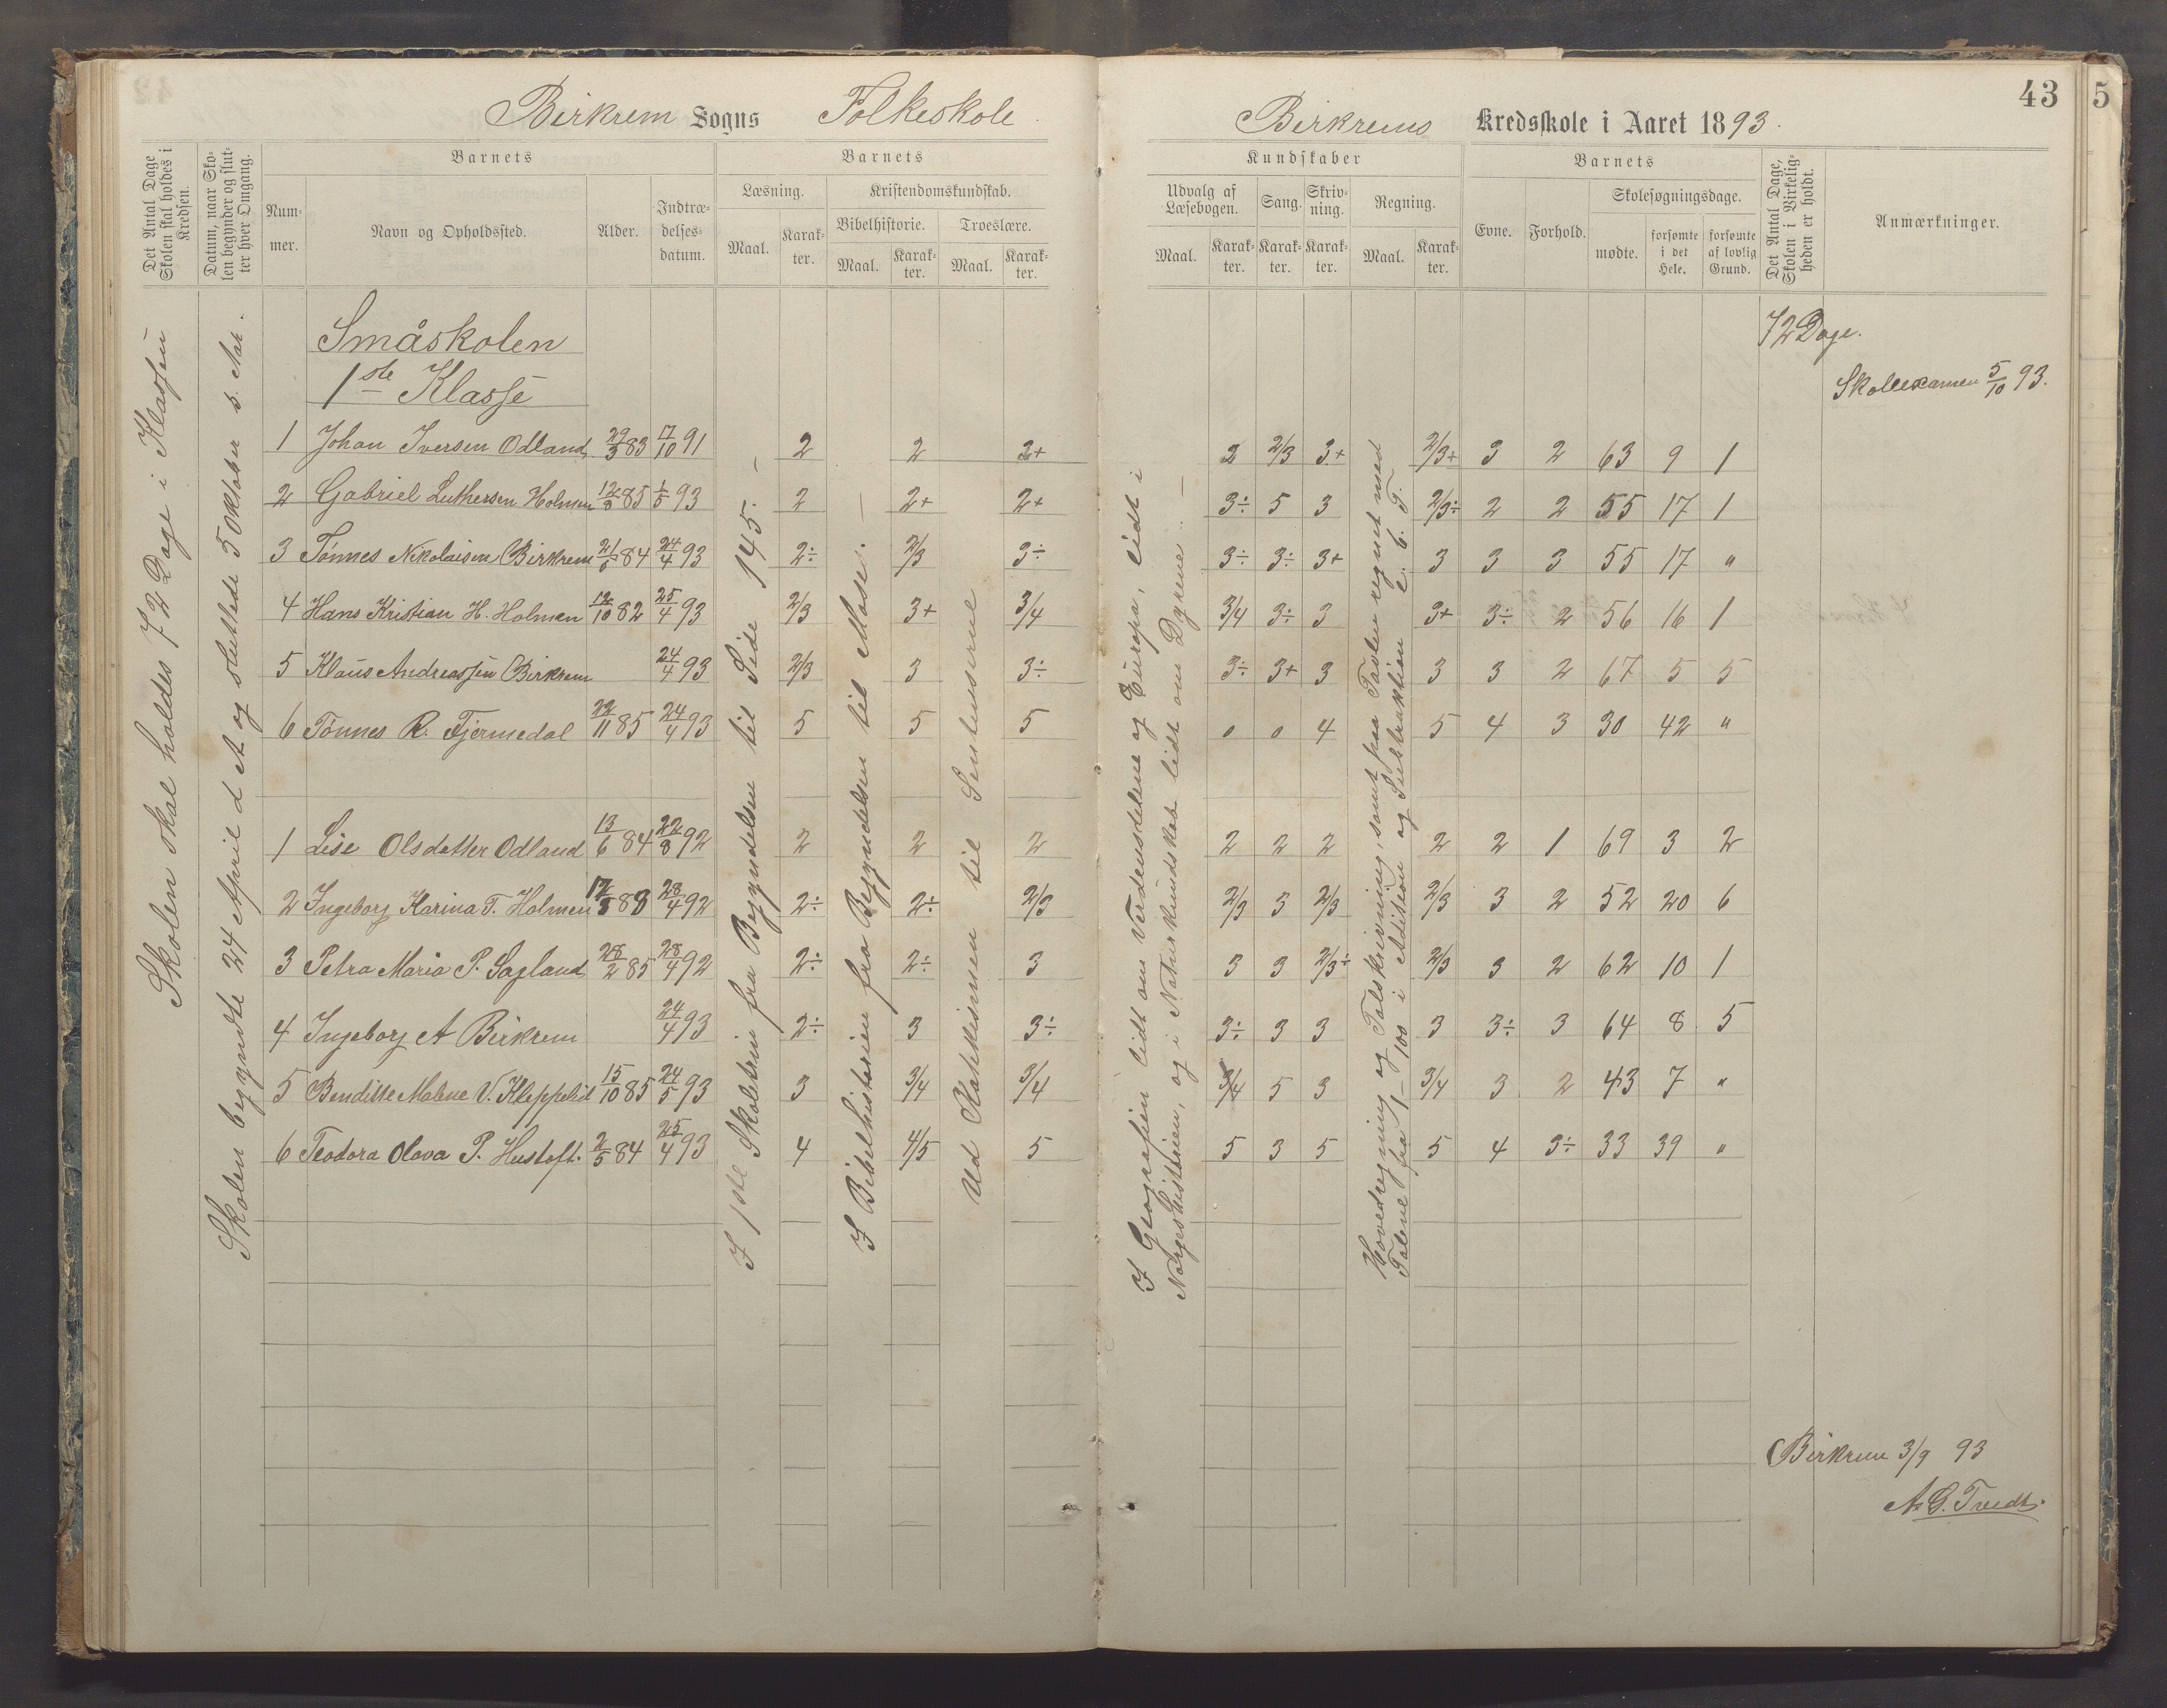 Birkrem Sogns Folkeskole.
Det Antal Dage Skolen skal holdes i Kredsen.
Datum, naar Skolen begynder og slutter hver Omgang.
Barnets
Nummer.
Navn og Opholdssted.
Alder.
Indtrædelsesdatum.
Barnets
Læsning.
Kristendomskundskab.
Bibelhistorie.
Troeslære.
Maal. Karakter. Maal. Karakter. Maal. Karakter.
Skolen skal holdes 72 Dage i Klassen
Skolen begyndte 24 April d A og sluttede 5 Oktober s. Aar.
Småskolen
1ste Klasse
1 Johan Iversen Odland 29/3 83 17/10 91 2 2 2+
2 Gabriel Luthersen Holmen 12/8 85 1/5 93 2 2+ 2+
3 Tønnes Nikolaisen Birkrem 84 24/4 93 2÷ 2/3 3÷
4 Hans Kristian H. Holmen 12/10 82 25/4 93 2/3 3+ 3/4
5 Klaus Andreassen Birkrem 24/4 93 2/3 3 3÷
6 Tønnes R. Fjermedal 22/11 85 24/4 93 5 5 5
1 Lise Olsdatter Odland 13/6 84 22/8 92 2 2 2
2 Ingeborg Karina T. Holmen 83 28/4 92 2÷ 2÷ 2/3
3 Petra Maria P. Sagland 28/2 85 28/4 92 2÷ 2÷ 3
4 Ingeborg A Birkrem 24/4 93 2÷ 3 3÷
5 Benditte Malene V. Kleppelid 15/10 85 24/5 93 3 3/4 3/4
6 Teodora Olava P. Hustoft. 2/5 84 25/4 93 4 4/5 5
I 1ste Skoletrin fra Begyndelsen til Side 145. –
I Bibelhistorien fra Begyndelsen til Mose. –
Ud Katekismen til Sentenserne
43
5
Birkrems Kredsskole i Aaret 1893.
Kundskaber
Udvalg af Læsebogen.
Sang.
Skrivning.
Regning.
Maal. Karakter. Karakter. Karakter. Maal. Karakter.
Barnets
Evne.
Forhold.
Skolesøgningsdage.
mødte.
forsømte i det Hele.
forsømte af lovlig Grund.
Det Antal Dage, Skolen i Virkeligheden er holdt.
Anmærkninger.
72 Dage.
Skoleexamen 5/10 93.
2 2/3 3+ 2/3+ 3 2 63 9 1
3÷ 5 3 2/3÷ 2 2 55 17 1
3÷ 3÷ 3+ 3 3 3 55 17 "
3/4 3÷ 3 3+ 3÷ 2 56 16 1
3÷ 3+ 3 3 3 2 67 5 5
0 0 4 5 4 3 30 42 "
2 2 2 2 2 1 69 3 2
2/3 3 2/3 2/3 3 2 52 20 6
3 3 2/3÷ 2/3 3 2 62 10 1
3÷ 3 3 3 3÷ 3 64 8 5
3/4 5 3 3/4 3 2 43 7 "
5 3 5 5 4 3÷ 33 39 "
I Geografien lidt om Verdensdelene og Europa, lidt i
Norgeshistorien, og i Naturkundskab lidt om Dyrene. –
Hovedregning og Talskrivning, samt paa Tavlen regnet med
Talene fra 1–100 i Addition og Subtraktion
Birkrem 3/9 93
A. G. Tvedt.